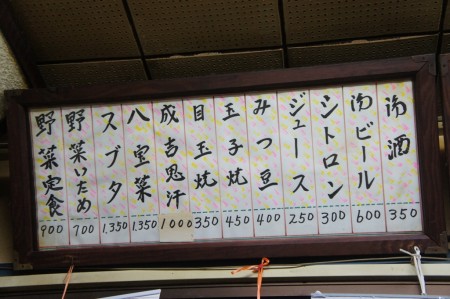 ㋩酒 350
㋩ビール 600
シトロン 300
ジュース 250
みつ豆 400
玉子焼 450
目玉焼 350
成吉思汗 1000
八宝菜 1,350
スブタ 1,350
野菜いため 700
野菜定食 900